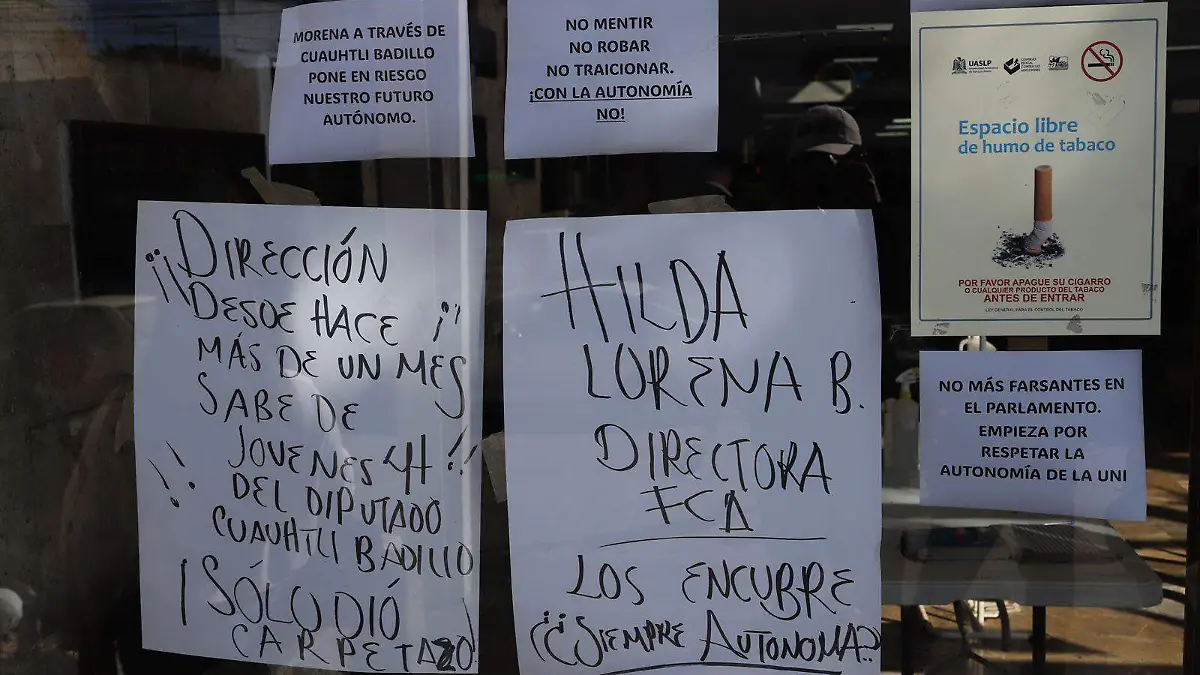 MORENA A TRAVÉS DE
CUAUHTLI BADILLO
PONE EN RIESGO
NUESTRO FUTURO
AUTÓNOMO.
NO MENTIR
NO ROBAR
NO TRAICIONAR.
¡CON LA AUTONOMÍA
NO!
UASLP
Espacio libre
de humo de tabaco
POR FAVOR APAGUE SU CIGARRO
O CUALQUIER PRODUCTO DEL TABACO
ANTES DE ENTRAR
LEY GENERAL PARA EL CONTROL DEL TABACO
¡¡DIRECCIÓN
DESDE HACE ¡¡
MÁS DE UN MES
SABE DE
JOVENES 4H !!
DEL DIPUTADO
CUAUHTLI BADILLO
¡SÓLO DIÓ
CARPETAZO!
HILDA
LORENA B.
DIRECTORA
FCA
LOS ENCUBRE
(¡¡SIEMPRE AUTONOMA??
NO MÁS FARSANTES EN
EL PARLAMENTO.
EMPIEZA POR
RESPETAR LA
AUTONOMÍA DE LA UNI